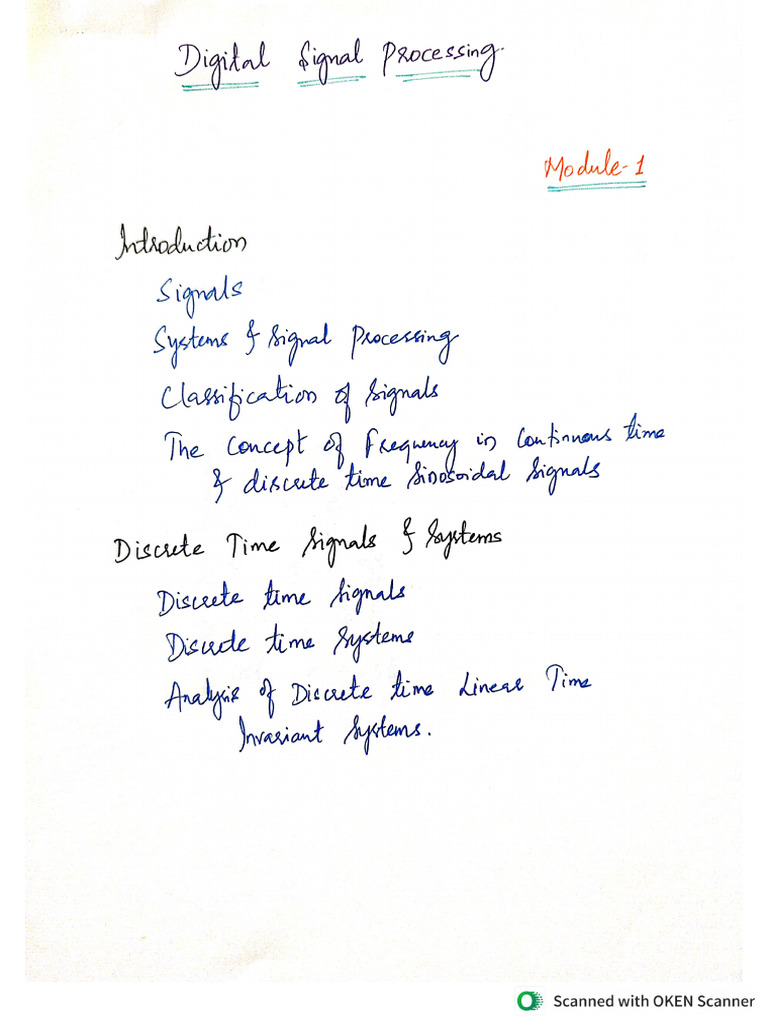 Digital Signal Processing.
Module-1
Introduction
Signals
Systems & Signal Processing
Classification of Signals
The concept of Frequency in continuous time
& discrete time sinosoidal signals
Discrete Time Signals & Systems
Discrete time signals
Discrete time systems
Analysis of Discrete time Linear Time
Invariant Systems.
Scanned with OKEN Scanner